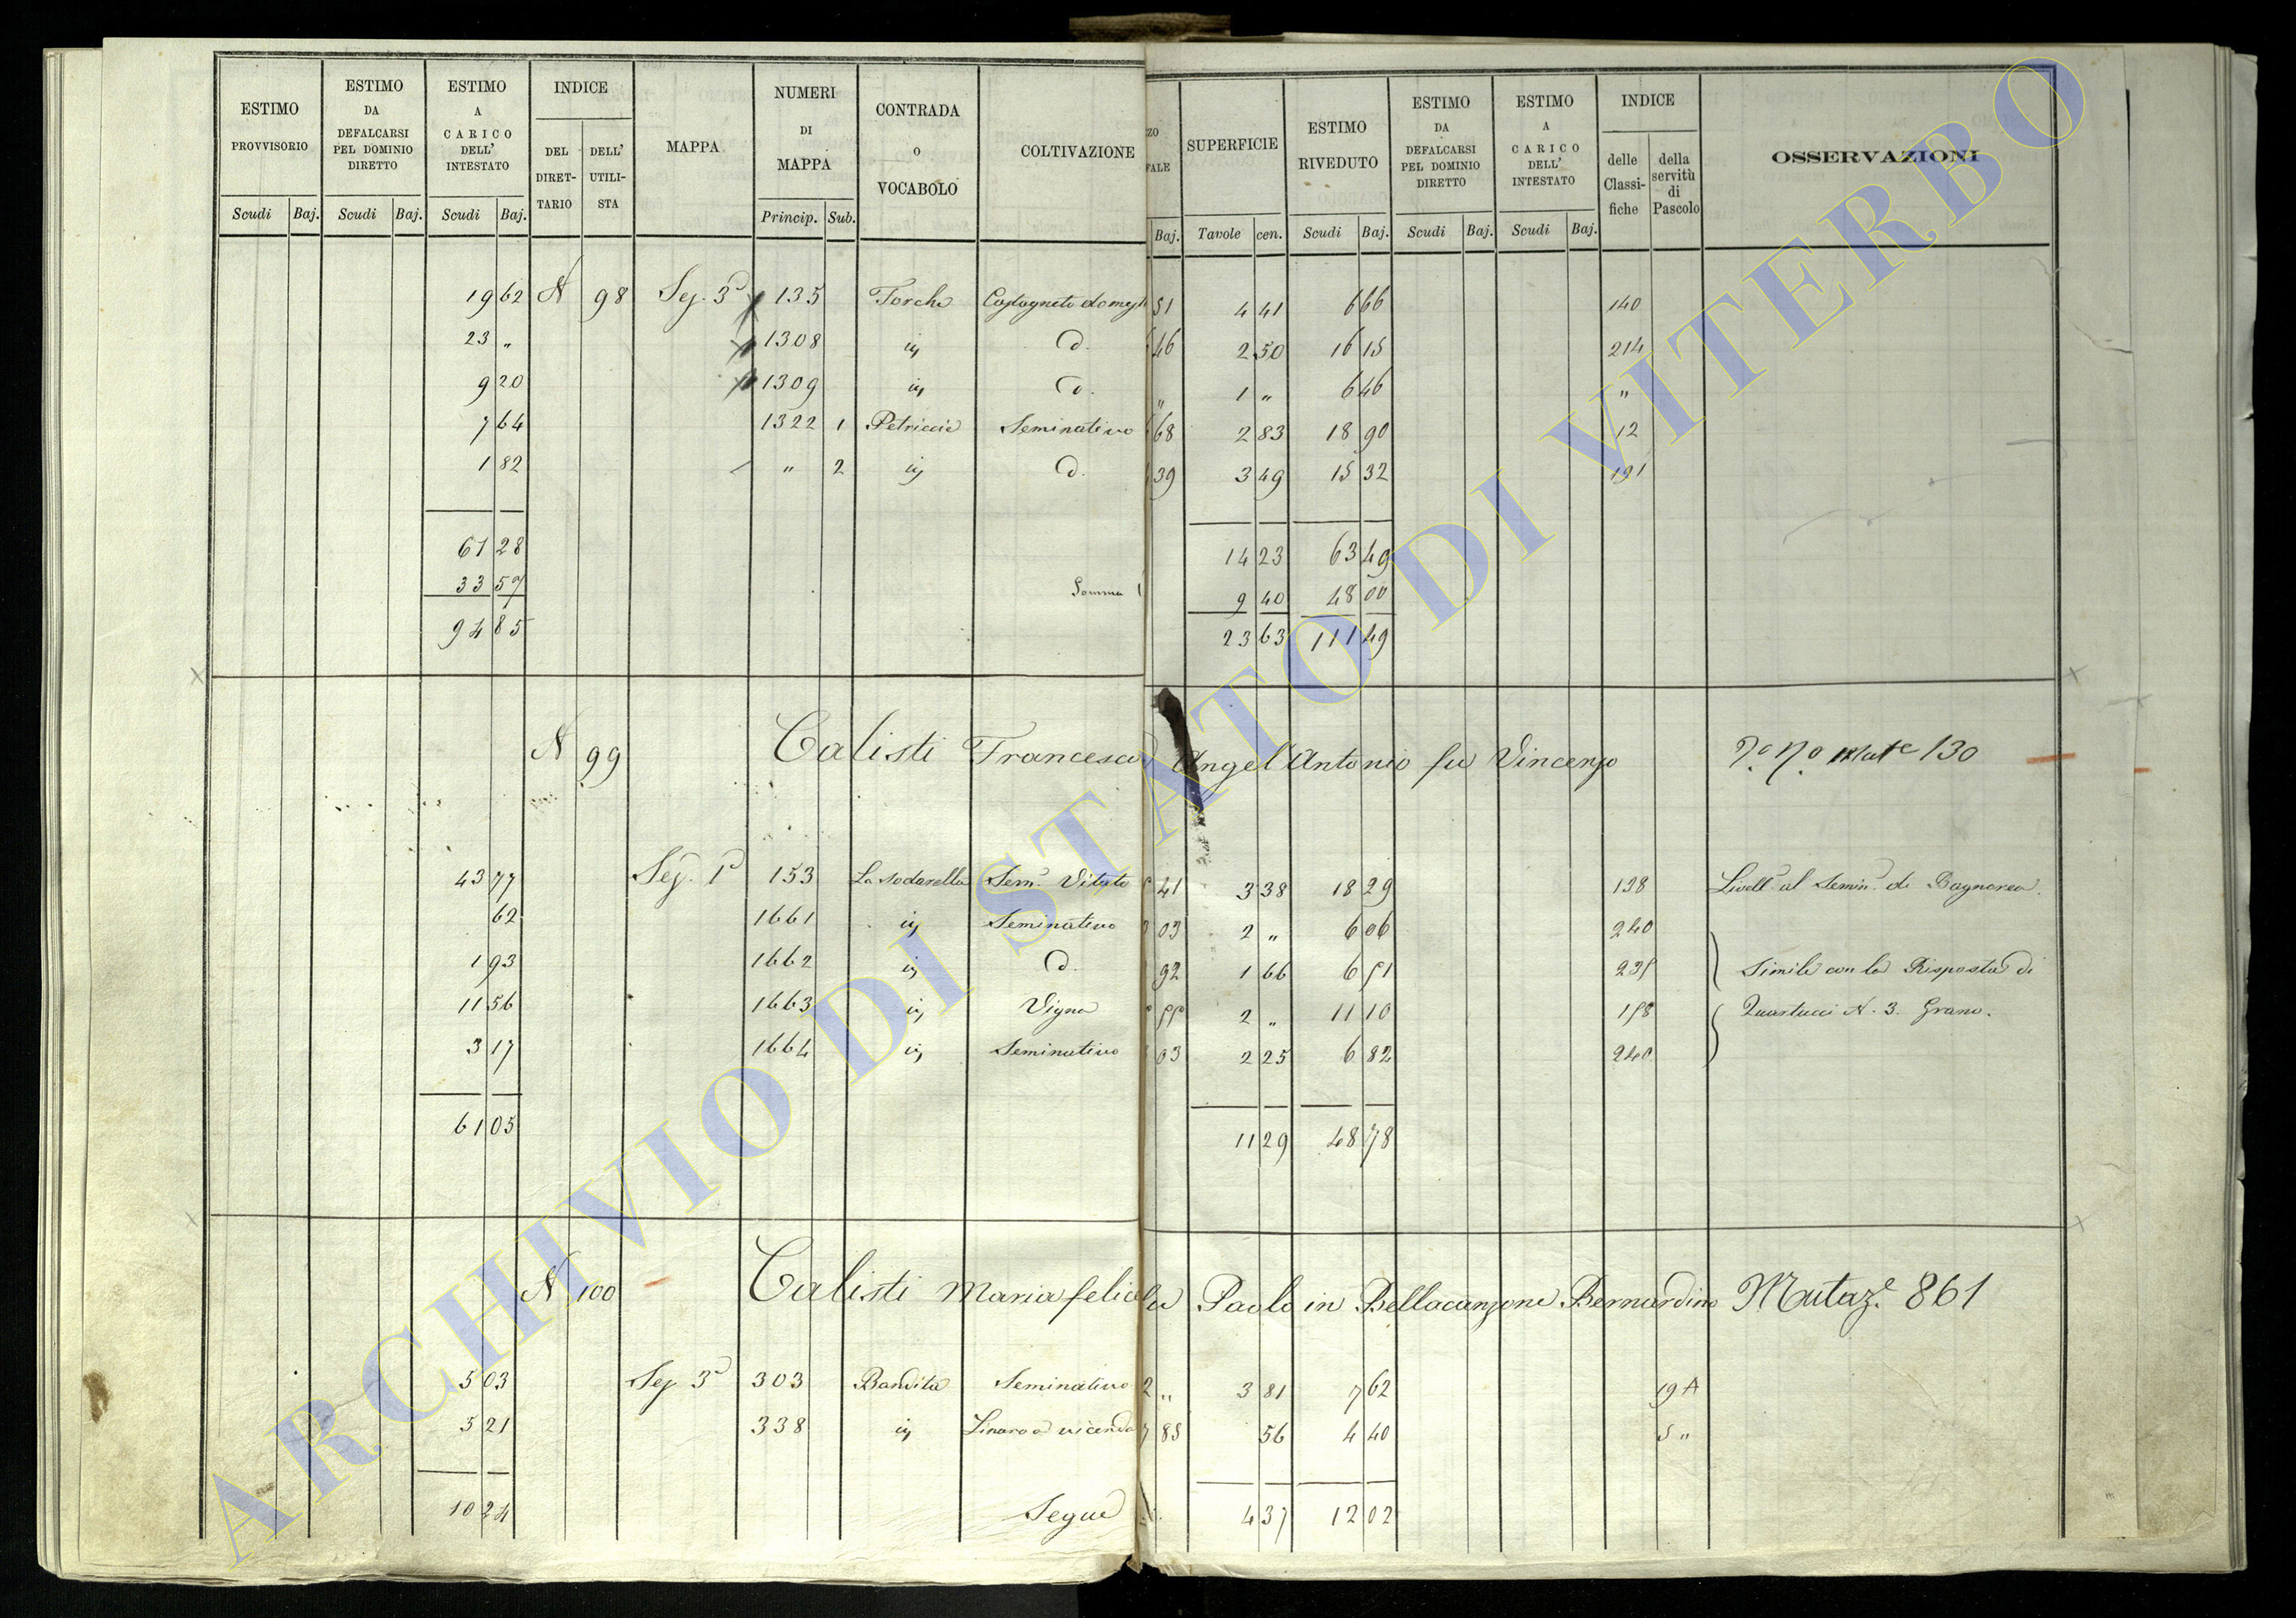 ESTIMO PROVVISORIO Scudi Baj. ESTIMO DA DEFALCARSI PEL DOMINIO DIRETTO Scudi Baj. ESTIMO A CARICO DELL' INTESTATO Scudi Baj. INDICE DEL DIRETTARIO DELL' UTILISTA MAPPA NUMERI DI MAPPA Princip. Sub. CONTRADA O VOCABOLO COLTIVAZIONE ZO FALE Baj. SUPERFICIE Tavole cen. ESTIMO RIVEDUTO Scudi Baj. ESTIMO DA DEFALCARSI PEL DOMINIO DIRETTO Scudi Baj. ESTIMO A CARICO DELL' INTESTATO Scudi Baj. INDICE delle Classifiche della servitù di Pascolo OSSERVAZIONI
19 62 N 98 Sez. 3ª 135 Torche Castagneto domest 51 4 41 6 66 140
23 „ 1308 id. 46 2 50 16 15 214
9 20 1309 id. „ 1 „ 6 46 „
7 64 1322 1 Petriccia Seminativo 68 2 83 18 90 12
1 82 „ 2 id. 39 3 49 15 32 191
61 28 14 23 63 49
33 57 Somma 9 40 48 00
94 85 23 63 111 49
N 99 Calisti Francesco Angel'Antonio fu Vincenzo 130
43 77 Sez. 1ª 153 La sodarella Sem.º Vitato 41 3 38 18 29 128 Livell.º al Semin.º di Bagnorea.
62 1661 id. Seminativo 03 2 „ 6 06 240
1 93 1662 id. 92 1 66 6 51 235 Simile con la Risposta di
11 56 1663 id. Vigna 55 2 „ 11 10 158 Quartucci N. 3. Grano.
3 17 1664 id. Seminativo 03 2 25 6 82 240
61 05 11 29 48 78
N 100 Calisti Maria felice fu Paolo in Bellacanzone Bernardino Mutaz.e 861
5 03 Sez 3ª 303 Bandita Seminativo 2 „ 3 81 7 62 19 A
5 21 338 id. Linaro a vicenda 7 85 56 4 40 5 „
10 24 Segue 4 37 12 02
ARCHIVIO DI STATO DI VITERBO